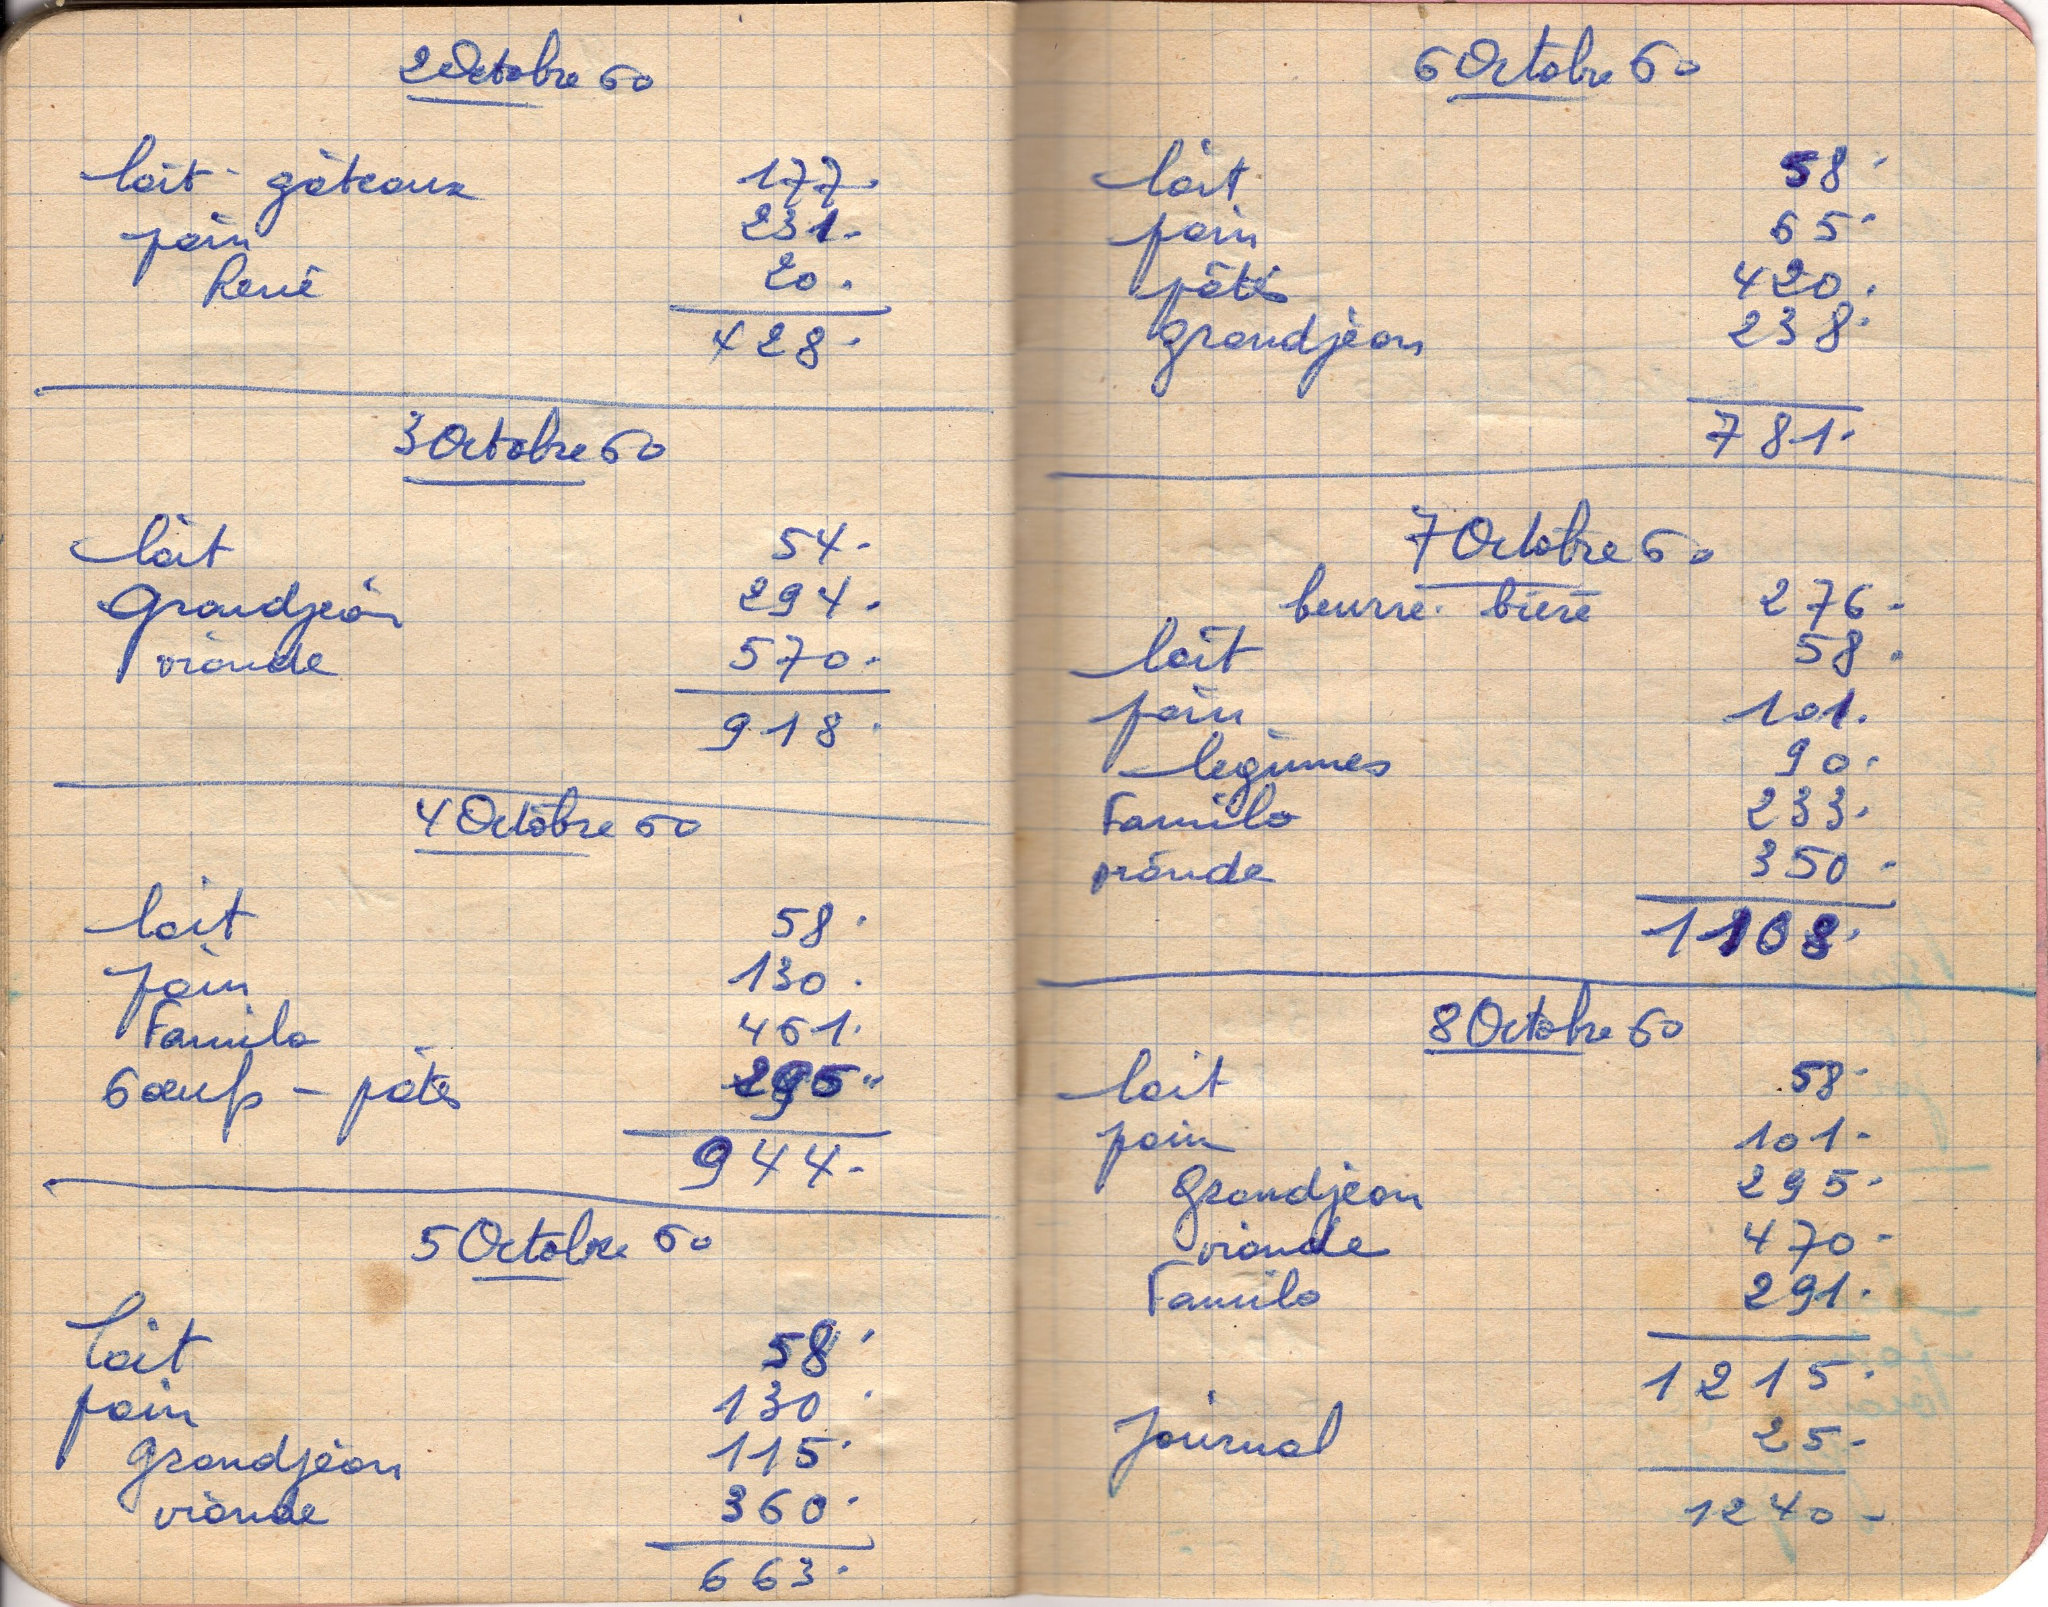 2 Octobre 60
lait - gâteaux 177.
pain 231.
René 20.
428.
3 Octobre 60
lait 54.
Grandjean 294.
viande 570.
918.
4 Octobre 60
lait 58.
pain 130.
Familo 461.
6 œufs - pâtés 295.
944.
5 Octobre 60
lait 58.
pain 130.
Grandjean 115.
viande 360.
663.
6 Octobre 60
lait 58.
pain 65.
pâtés 420.
Grandjean 238.
781.
7 Octobre 60
beurre. bière 276.
lait 58.
pain 101.
légumes 90.
Familo 233.
viande 350.
1108.
8 Octobre 60
lait 58.
pain 101.
Grandjean 295.
viande 470.
Familo 291.
1215.
Journal 25.
1240.